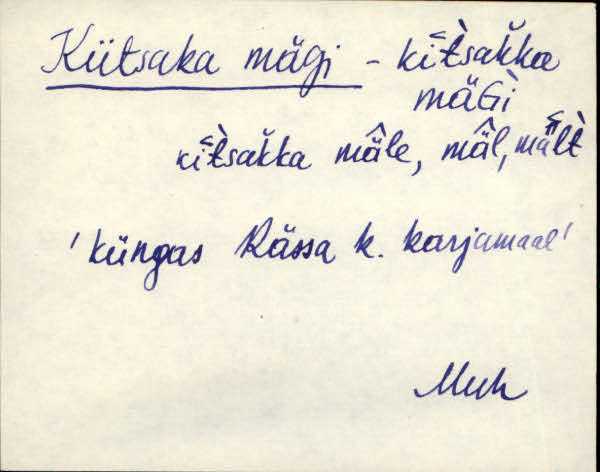 Kiitsaka mägi - kìt̀sak̆ka
mäGì
kìt̀sak̆ka mä̂le, mä̂l, mält̀
'küngas Rässa k. karjamaal'
Muh